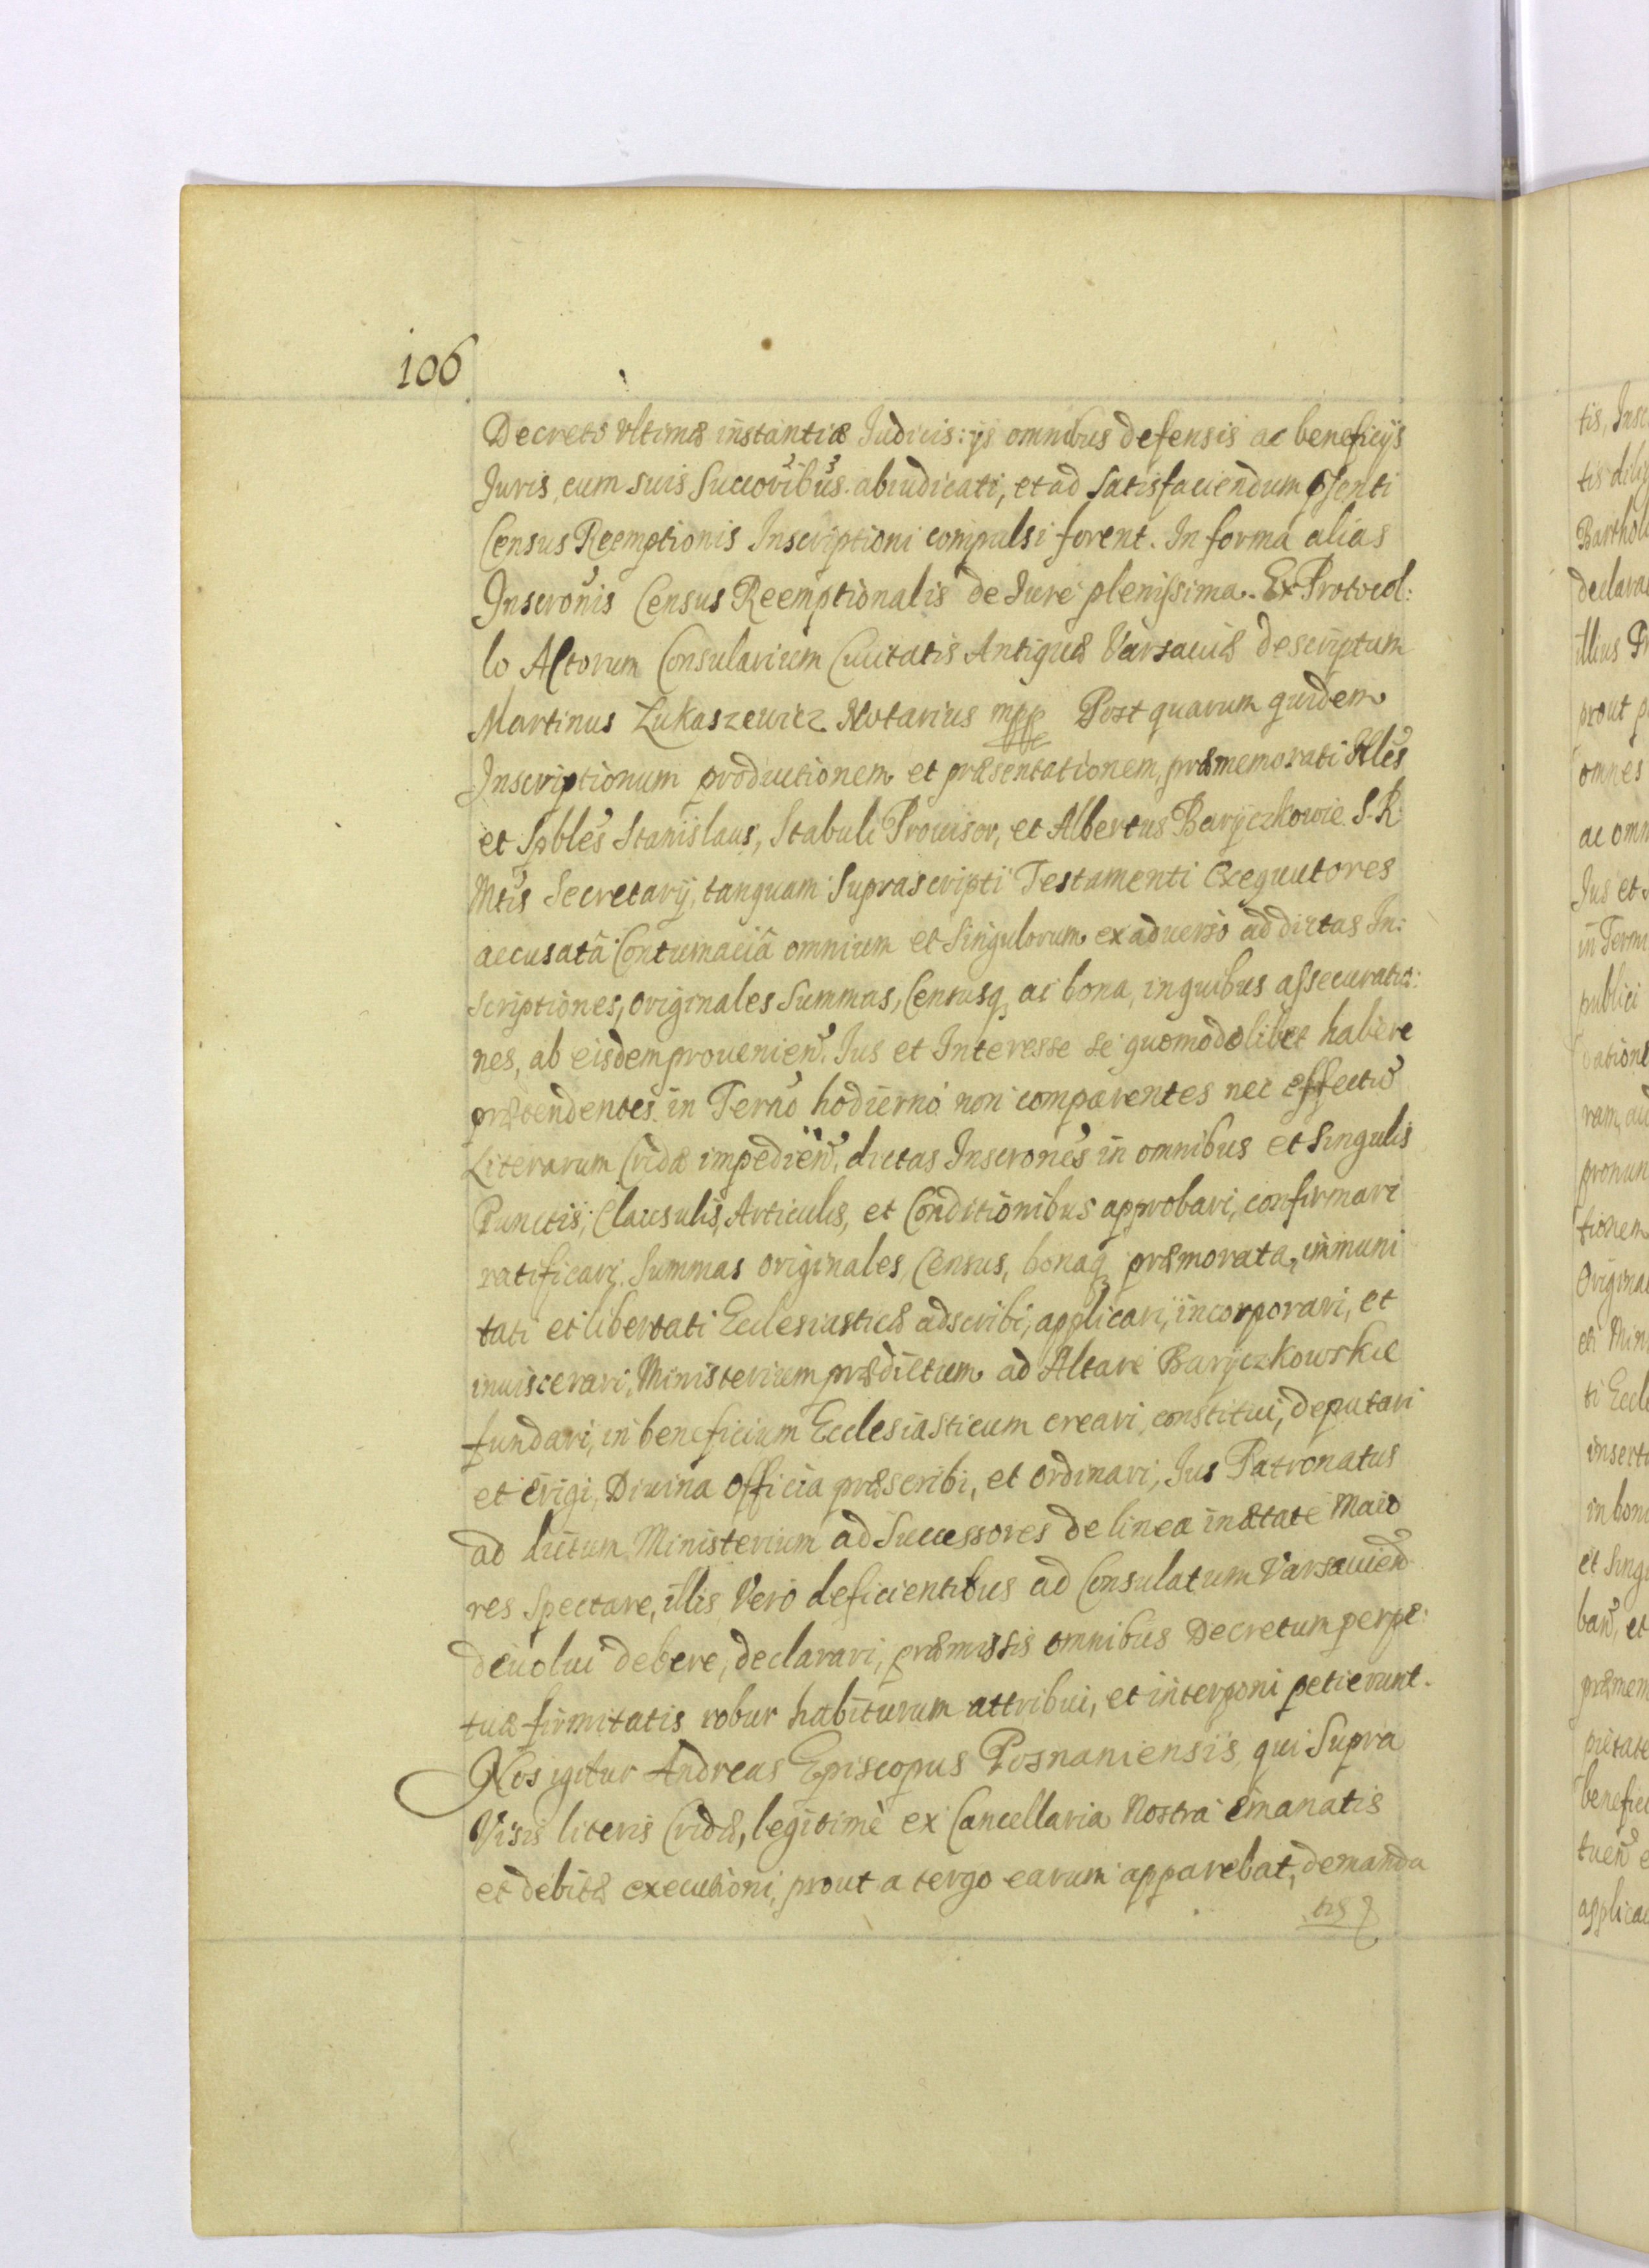 106
Decreto vltimæ instantiæ Iudicis: ijs omnibus defensis ac beneficijs
Iuris, cum suis Succoribus abiudicati, et ad satisfaciendum pñsenti
Census Reemptionis Inscriptioni compulsi forent. In formá alias
Inscronis Census Reemptionalis de Iure plenissima. Ex Protocol:
lo Actorum Consularium Ciuitatis Antiquæ Varsauiæ descriptum
Martinus Łukaszewicz Notarius mpp Post quarum quidem
Inscriptionum productionem et præsentationem, præmemorati
et Spbles Stanislaus, Stabuli Prouisor, et Albertus Baryczkowie S. R.
Mtis Secretarij, tanquam suprascripti Testamenti Exequutores
accusatâ Contumaciâ omnium et Singulorum ex aduerso ad dictas In:
scriptiones, originales Summas, Censusq, ac bona, in quibus assecuratio:
nes, ab eisdem prouenien. Ius et Interesse se quomodolibet habere
prætendentes in Terno hodierno non comparentes nec effectu
Literarum Cridæ impedien, dictas Inscrones in omnibus et Singulis
Punctis, Clausulis, Articulis, et Conditionibus approbari, confirmari
ratificari. Summas originales, Census, bonaq præmorata, immuni
tati et libertati Ecclesiasticæ adscribi, applicari, incorporari, et
inuiscerari, Ministerium prædictum ad Altare Baryczkowskie
fundari, in beneficium Ecclesiasticum creari, constitui, deputari
et erigi, Diuina officia præscribi, et ordinari, Ius Patronatus
ad dictum Ministerium ad Successores de linea in ætate Maio
res Spectare, illis Vero deficientibus ad Consulatum Varsauien
deuolui debere, declarari, præmissis omnibus Decretum perpe:
tuæ firmitatis robur habiturum attribui, et interponi petierunt.
Nos igitur Andreas Episcopus Posnaniensis, qui Supra
Visis literis Cridæ, legitimè ex Cancellaria Nostra emanatis
et debitæ executioni, prout a tergo earum apparebat, demanda
tis